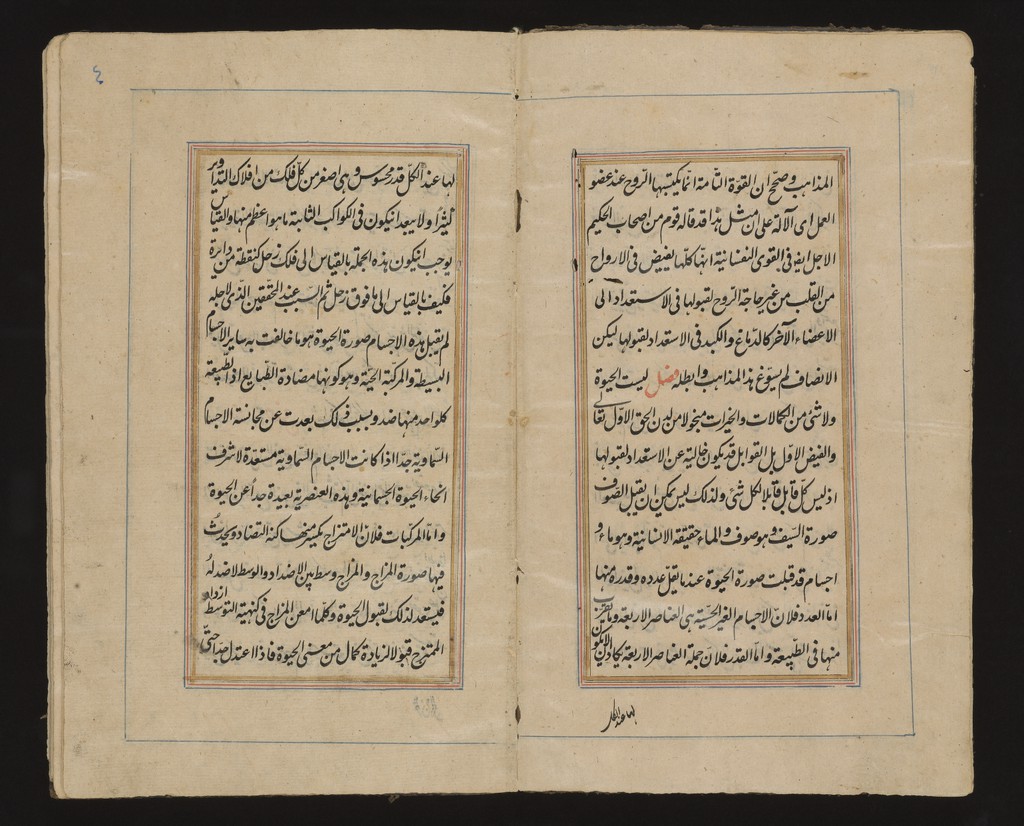 المذاهب وصحح ان القوة التامة انما يكتسبها الروح عند عضو
العمل اى الآلة على ان مثل هذا قد قاله قوم من اصحاب الحكيم
الاجل ايضا فى القوى النفسانية انها كلها يفيض فى الارواح
من القلب من غير حاجة الروح لقبولها فى الاستعداد الى
الاعضاء الآخر كالدماغ والكبد فى الاستعداد لقبولها ليكن
الانصاف لم يسوغ هذا المذاهب وابطله فصل ليست الحيوة
ولا شئ من الكمالات والخيرات منجولا من لدن الحق الاول تعالى
والفيض الاول بل القوابل قد يكون خالية عن الاستعداد لقبولها
اذ ليس كل قابل قابلا لكل شئ ولذلك ليس يمكن ان يقبل الصوف
صورة السيف وهو صوف والماء حقيقة الانسانية وهو ماء و
اجسام قد قبلت صورة الحيوة عندما يقل عدده وقدره منها
اما العدد فلان الاجسام الغير الحسية هى العناصر الاربعة وما يقرب
منها فى الطبيعة واما القدر فلان جملة العناصر الاربعة يكاد ان لا يكون
لها عند الكل
٤
لها عند الكل قدر محسوس وهى اصغر من كل فلك من افلاك التداوير
كثيرا ولا يبعد انيكون فى الكواكب الثابتة ما هو اعظم منها والقياس
يوجب انيكون هذه الجملة بالقياس الى فلك زحل كنقطة من دايرة
فكيف بالقياس الى ما فوق زحل ثم السبب عند المحققين الذى لاجله
لم يقبل هذه الاجسام صورة الحيوة هو ما خالفت به ساير الاجسام
البسيطة والمركبة الحية وهو كونها مضادة الطبايع اذ الطبيعة
كلواحد منها ضد وبسبب ذلك بعدت عن مجانسة الاجسام
السماوية جدا اذا كانت الاجسام السماوية مستعدة لاشرف
انحاء الحيوة الجسمانية وهذه العنصرية بعيدة جدا عن الحيوة
واما المركبات فلان الامتزاج يكسر منها كنه التضاد ويحدث
فيها صورة المزاج والمزاج وسط بين الاضداد والوسط لا ضد له
فيستعد لذلك لقبول الحيوة وكلما امعن المزاج فى كنهية التوسط ازداد
الممتزج قبولا لزيادة كمال من معنى الحيوة فاذا اعتدل جدا حتى